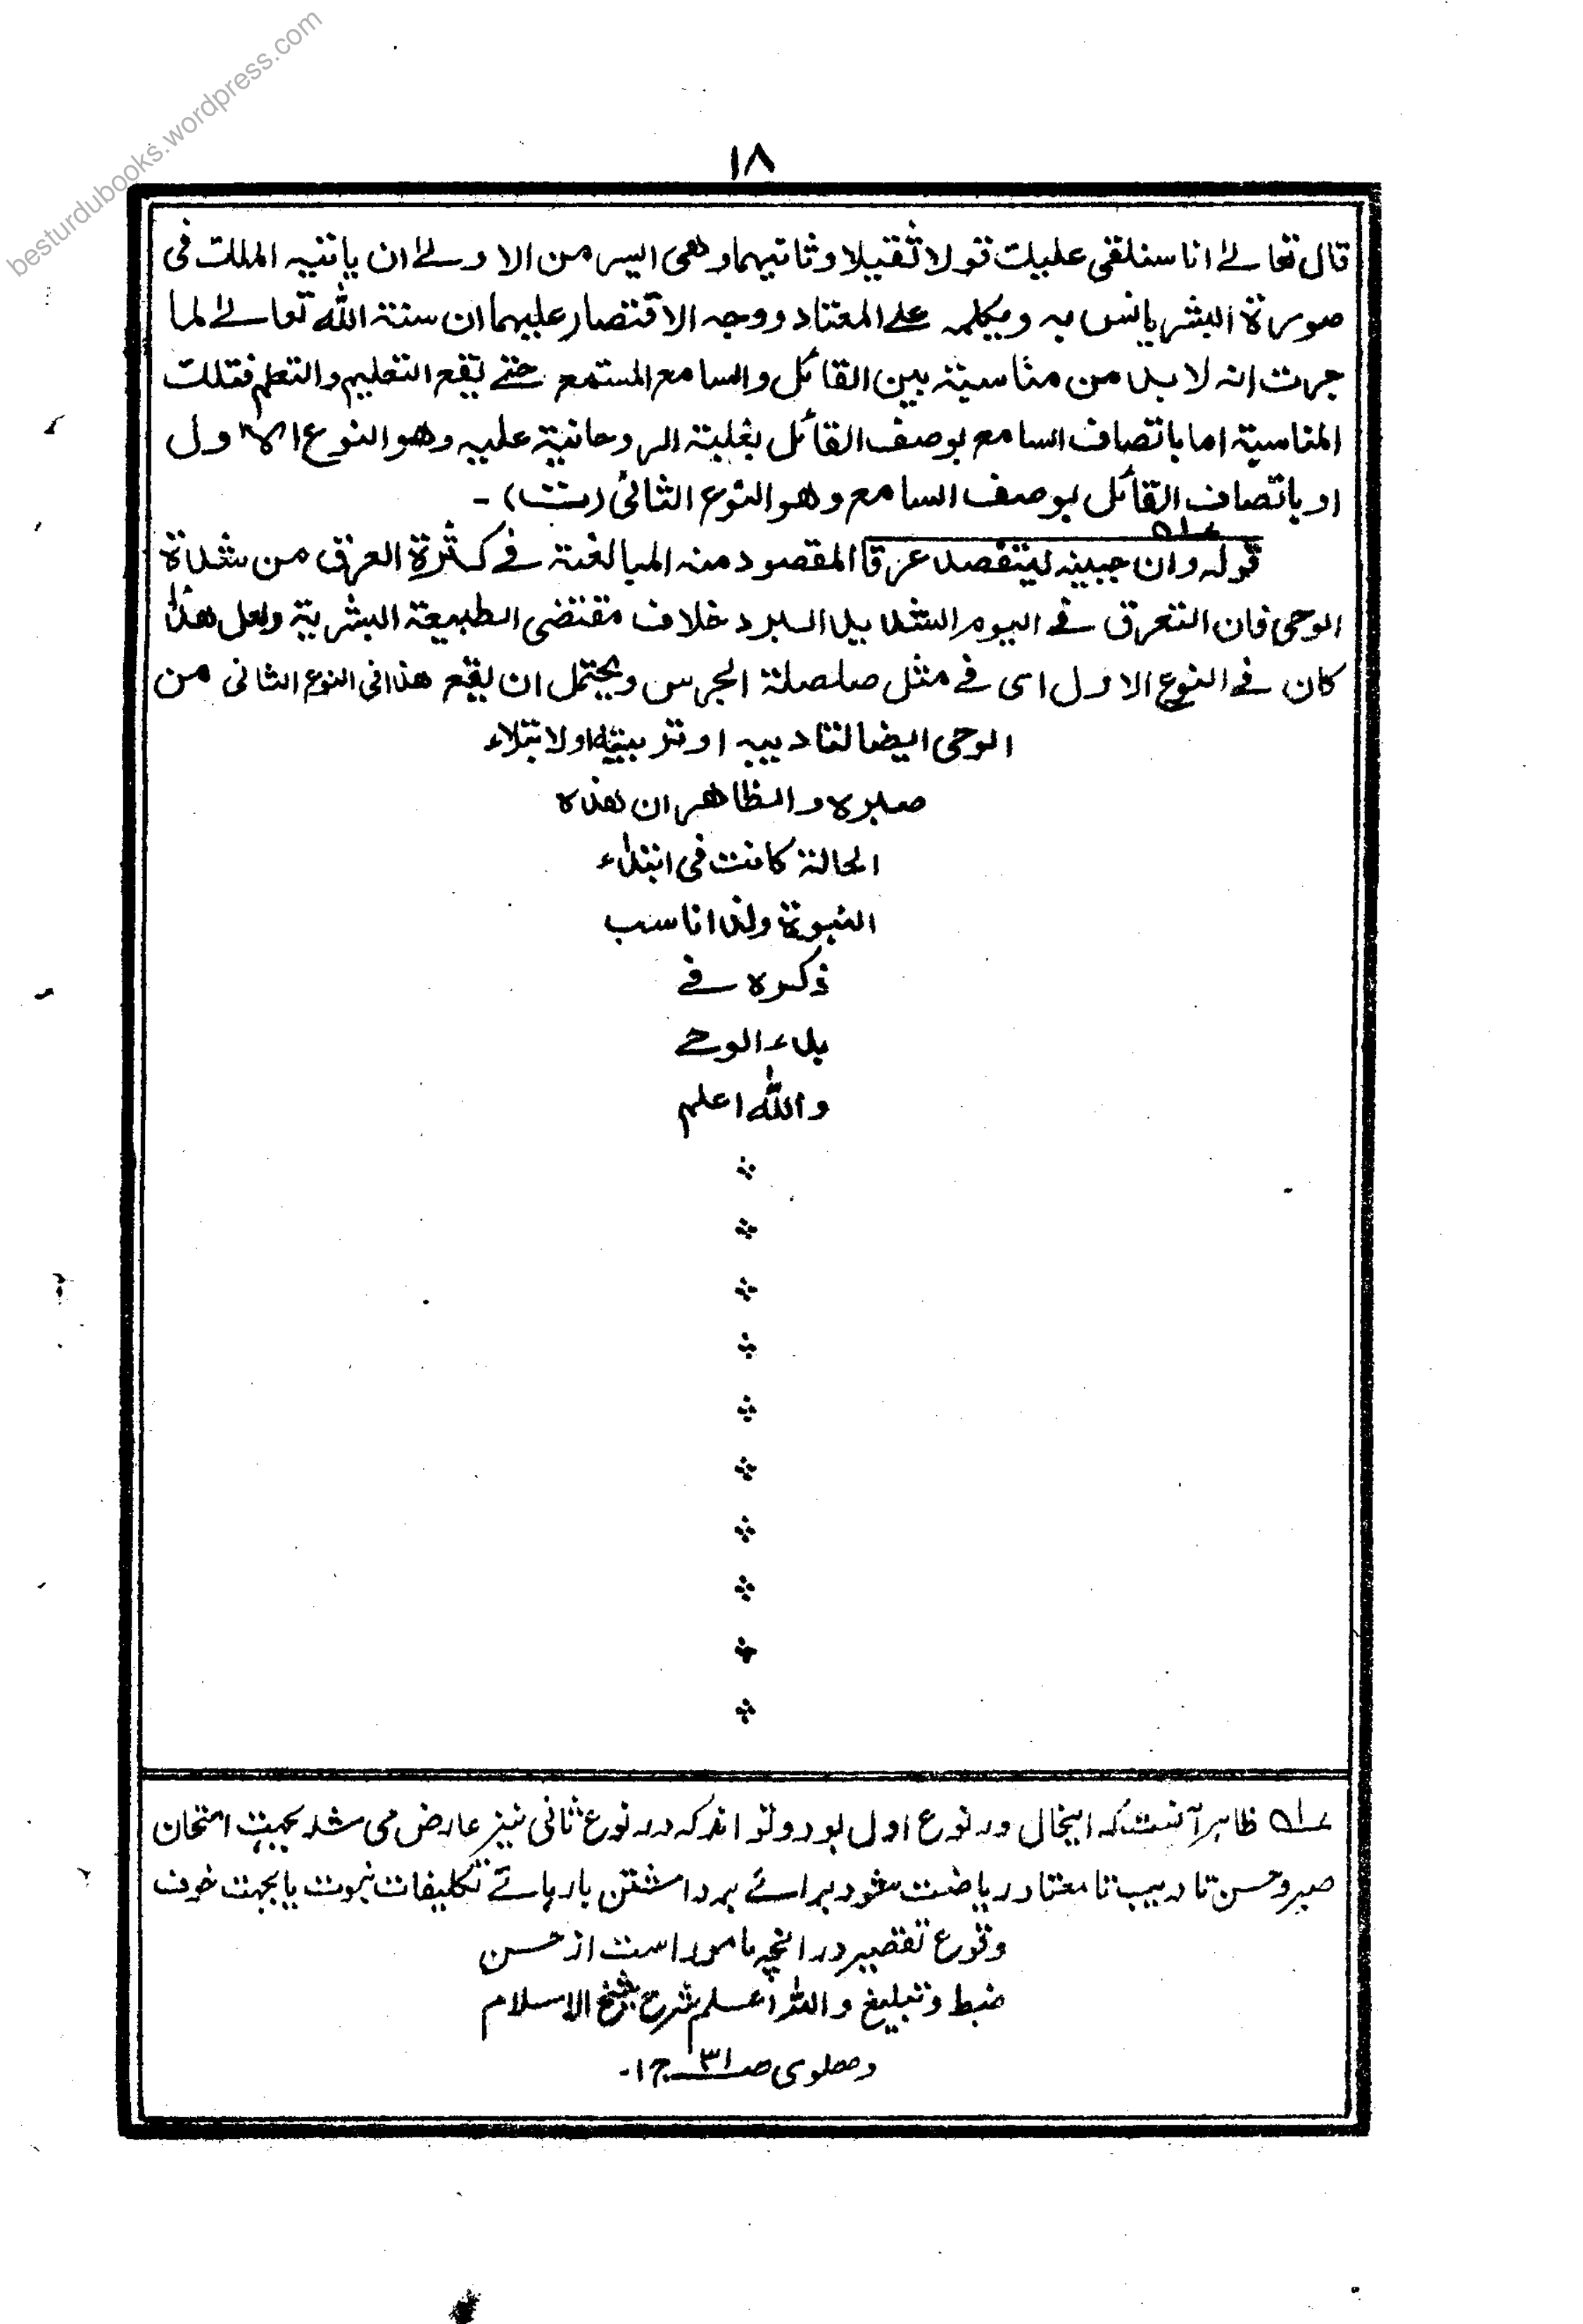 besturdubooks.wordpress.com
١٨
قال تعالےٰ انا سنلقی علیک قولا ثقیلا وثانیهما وهی ایسر من الاولےٰ ان یاتیه الملک فی
صورة البشر یانس به ویکلمه علے المعتاد ووجه الاقتصار علیهما ان سنة الله تعالےٰ لما
جرت انه لا بد من مناسبة بین القائل والسامع المستمع حتے یقع التعلیم والتعلم فتلک
المناسبة اما باتصاف السامع بوصف القائل بغلبة الروحانیة علیه وهو النوع الاول
او باتصاف القائل بوصف السامع وهو النوع الثانی (ست) -
قوله وان جبینه لیتفصد عرقا المقصود منه المبالغة فے کثرة العرق من شدة
الوحی فان التعرق فے الیوم الشدید البرد خلاف مقتضی الطبیعة البشریة ولعل هذا
کان فے النوع الاول ای فے مثل صلصلة الجرس ویحتمل ان یقع هذا فی النوع الثانی من
الوحی ایضا لتادیبه او تربیته او لابتلاء
صبره والظاهر ان هذه
الحالة کانت فی ابتداء
النبوة ولذا ناسب
ذکره فے
بدء الوحے
والله اعلم
؎۱ ظاہر آنست کہ اینحال در نوع اول بود و تواند کہ در نوع ثانی نیز عارض می شد بجہت امتحان
صبر و حسن تادیب تا معتاد ریاضت شود برائے برداشتن بارہائے تکلیفات نبوت یا بجہت خوف
وقوع تقصیر در انچہ مامور است از حسن
ضبط و تبلیغ واللہ اعلم شرح شیخ الاسلام
دہلوی صـ۳۱ ج۱-